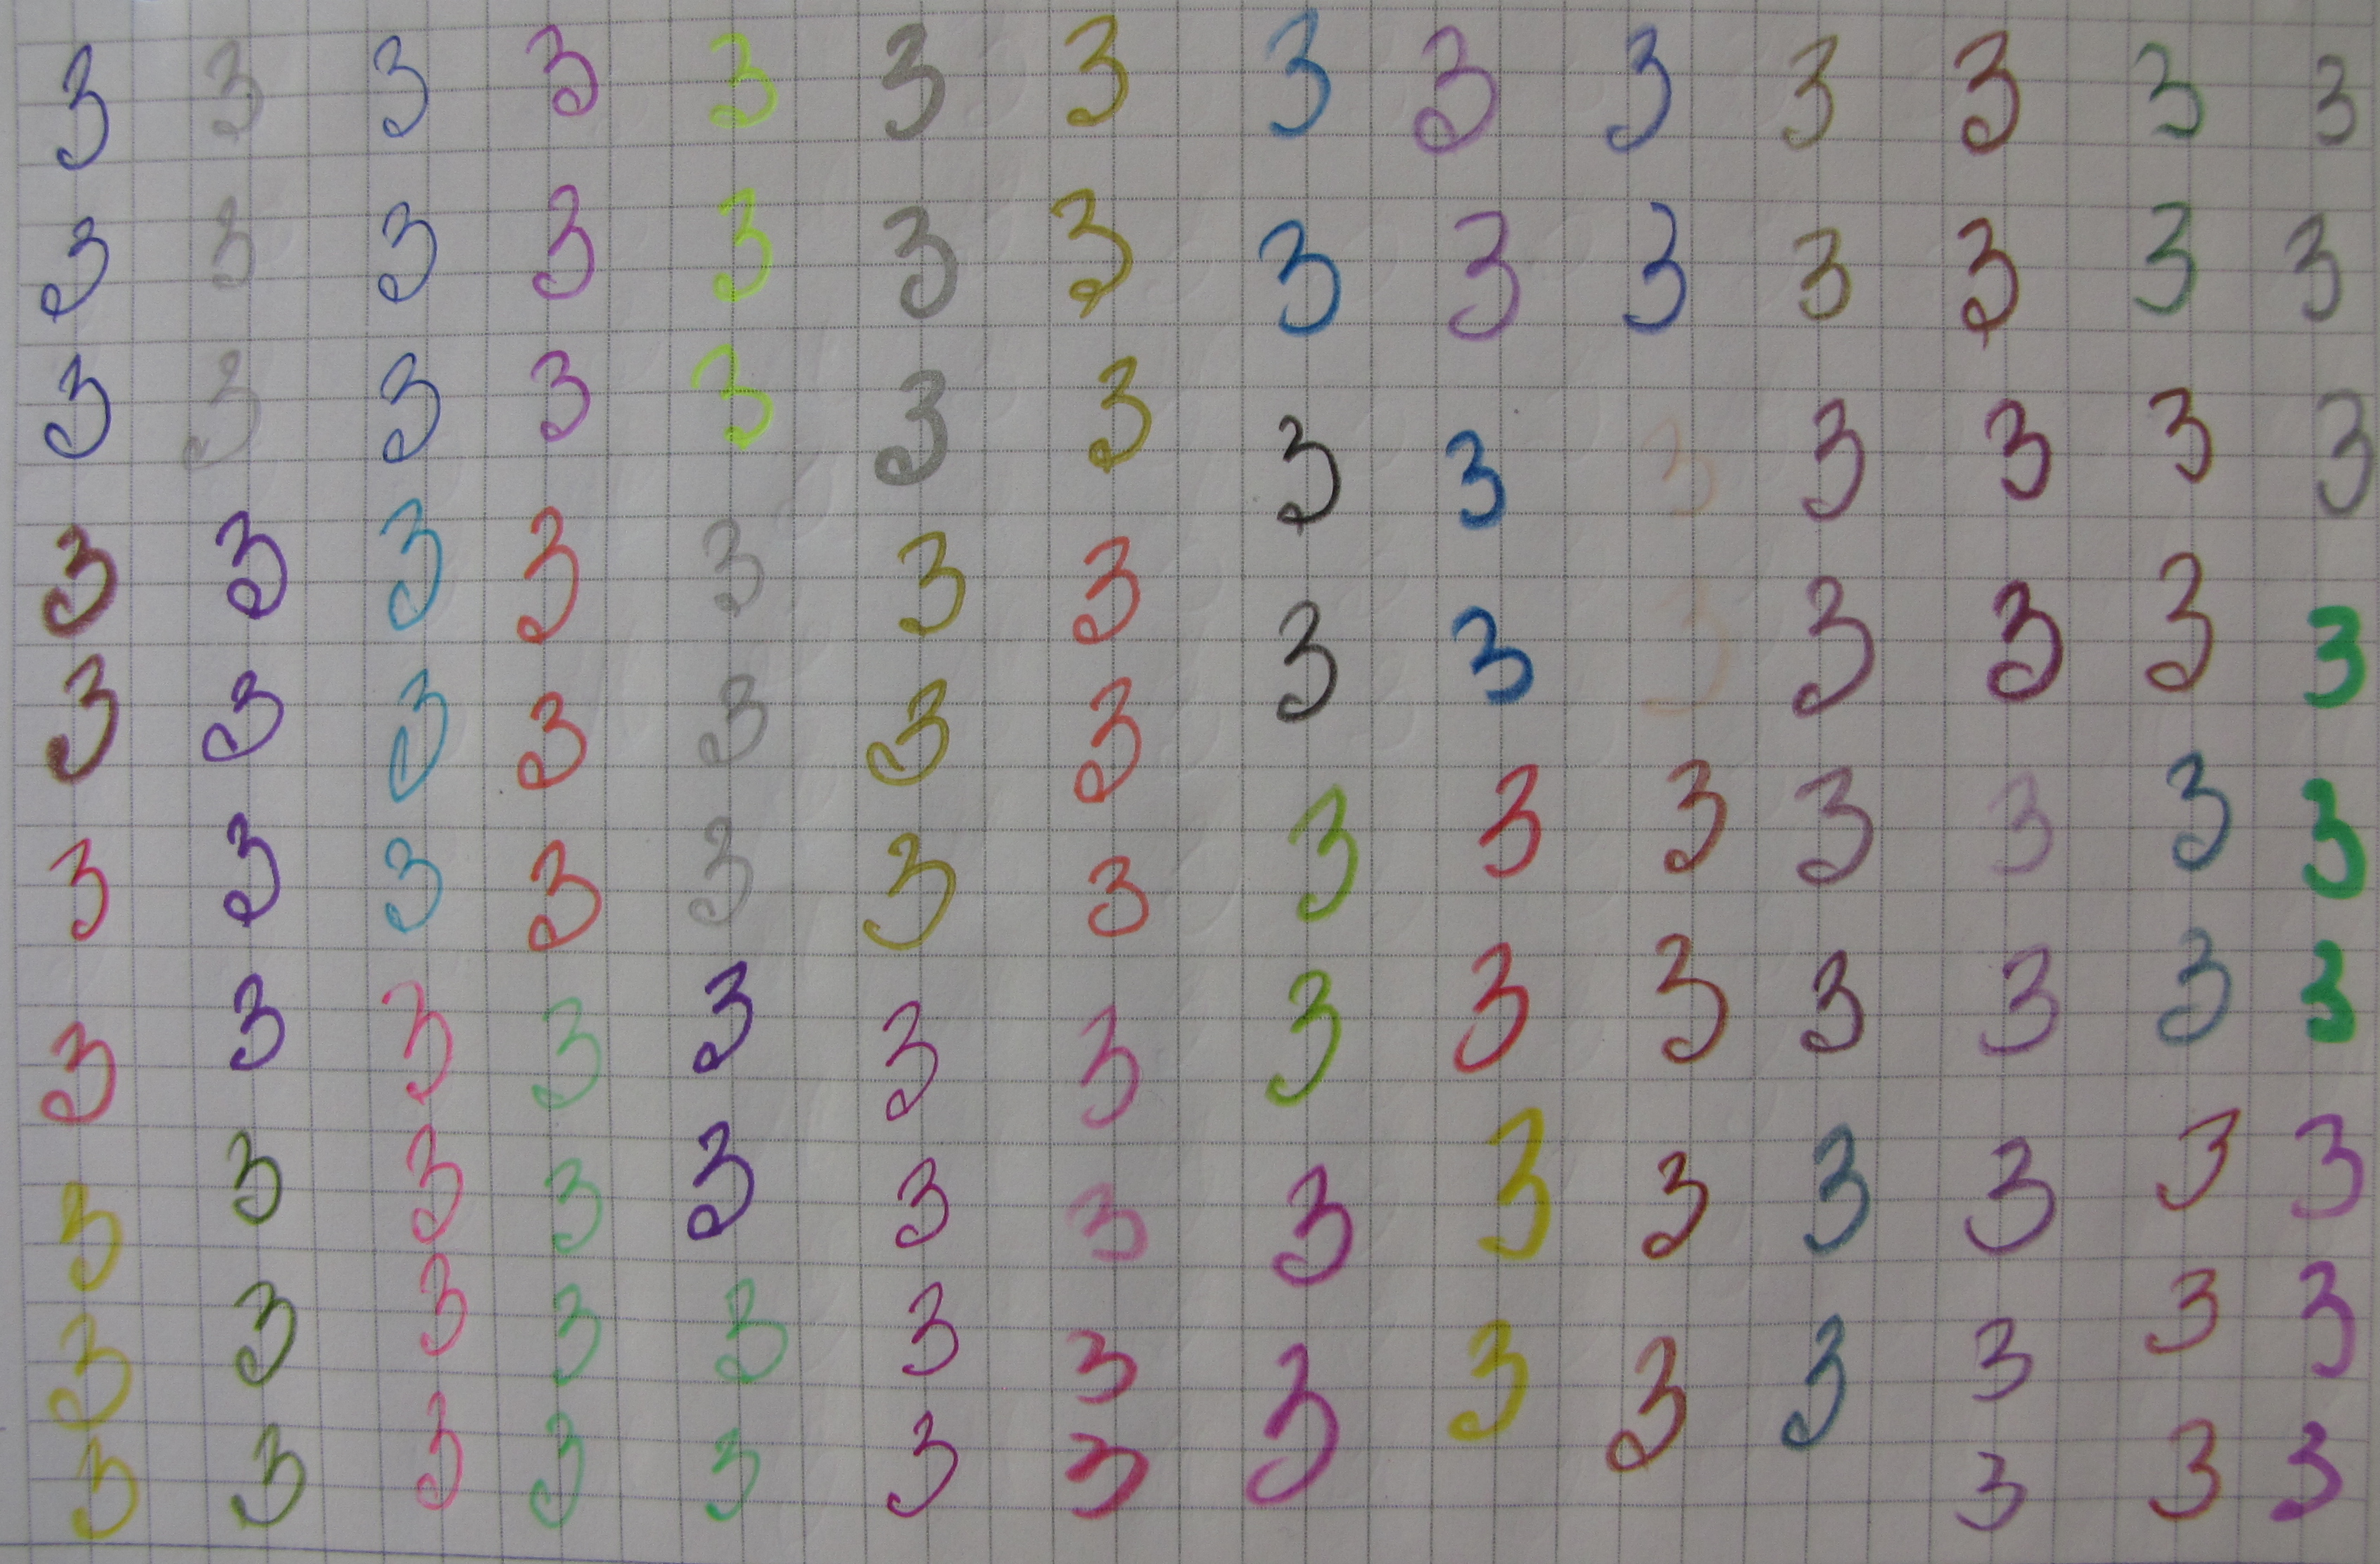 3 3 3 3 3 3 3 3 3 3 3 3 3 3
3 3 3 3 3 3 3 3 3 3 3 3 3 3
3 3 3 3 3 3 3 3 3 3 3 3 3 3
3 3 3 3 3 3 3 3 3 3 3 3 3 3
3 3 3 3 3 3 3 3 3 3 3 3 3 3
3 3 3 3 3 3 3 3 3 3 3 3 3 3
3 3 3 3 3 3 3 3 3 3 3 3 3 3
3 3 3 3 3 3 3 3 3 3 3 3 3 3
3 3 3 3 3 3 3 3 3 3
3 3 3 3 3 3 3